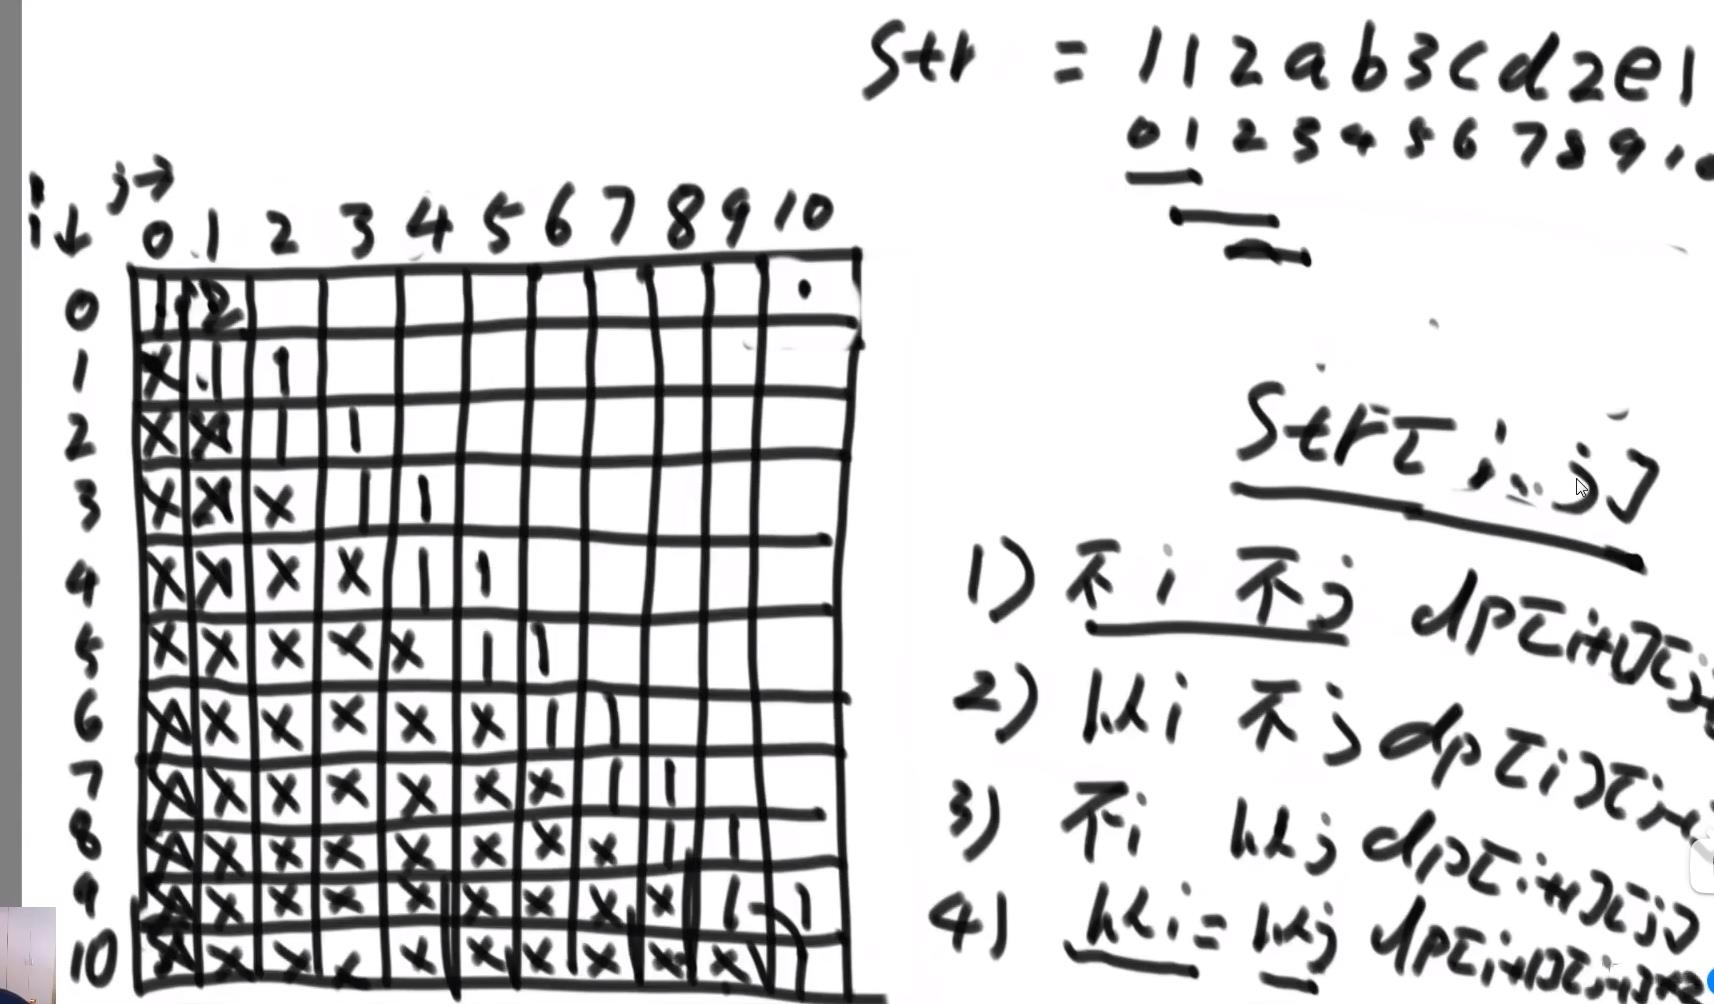 Str = 112ab3cd2e1
0 1 2 3 4 5 6 7 8 9 10
j→
i↓ 0 1 2 3 4 5 6 7 8 9 10
0 1 2
1 X 1 1
2 X X 1 1
3 X X X 1 1
4 X X X X 1 1
5 X X X X X 1 1
6 X X X X X X 1 1
7 X X X X X X X 1 1
8 X X X X X X X X 1 1
9 X X X X X X X X X 1 1
10 X X X X X X X X X X 1
Str[i..j]
1) 不i 不j dp[i+1][j-
2) 以i 不j dp[i][j-
3) 不i 以j dp[i+1][j]
4) 以i = 以j dp[i+1][j-1]+2